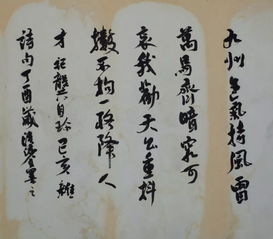 九州生氣恃風雷
萬馬齊喑究可
哀我勸天公重抖
擻不拘一格降人
才 龔自珍己亥雜
詩句丁酉歲